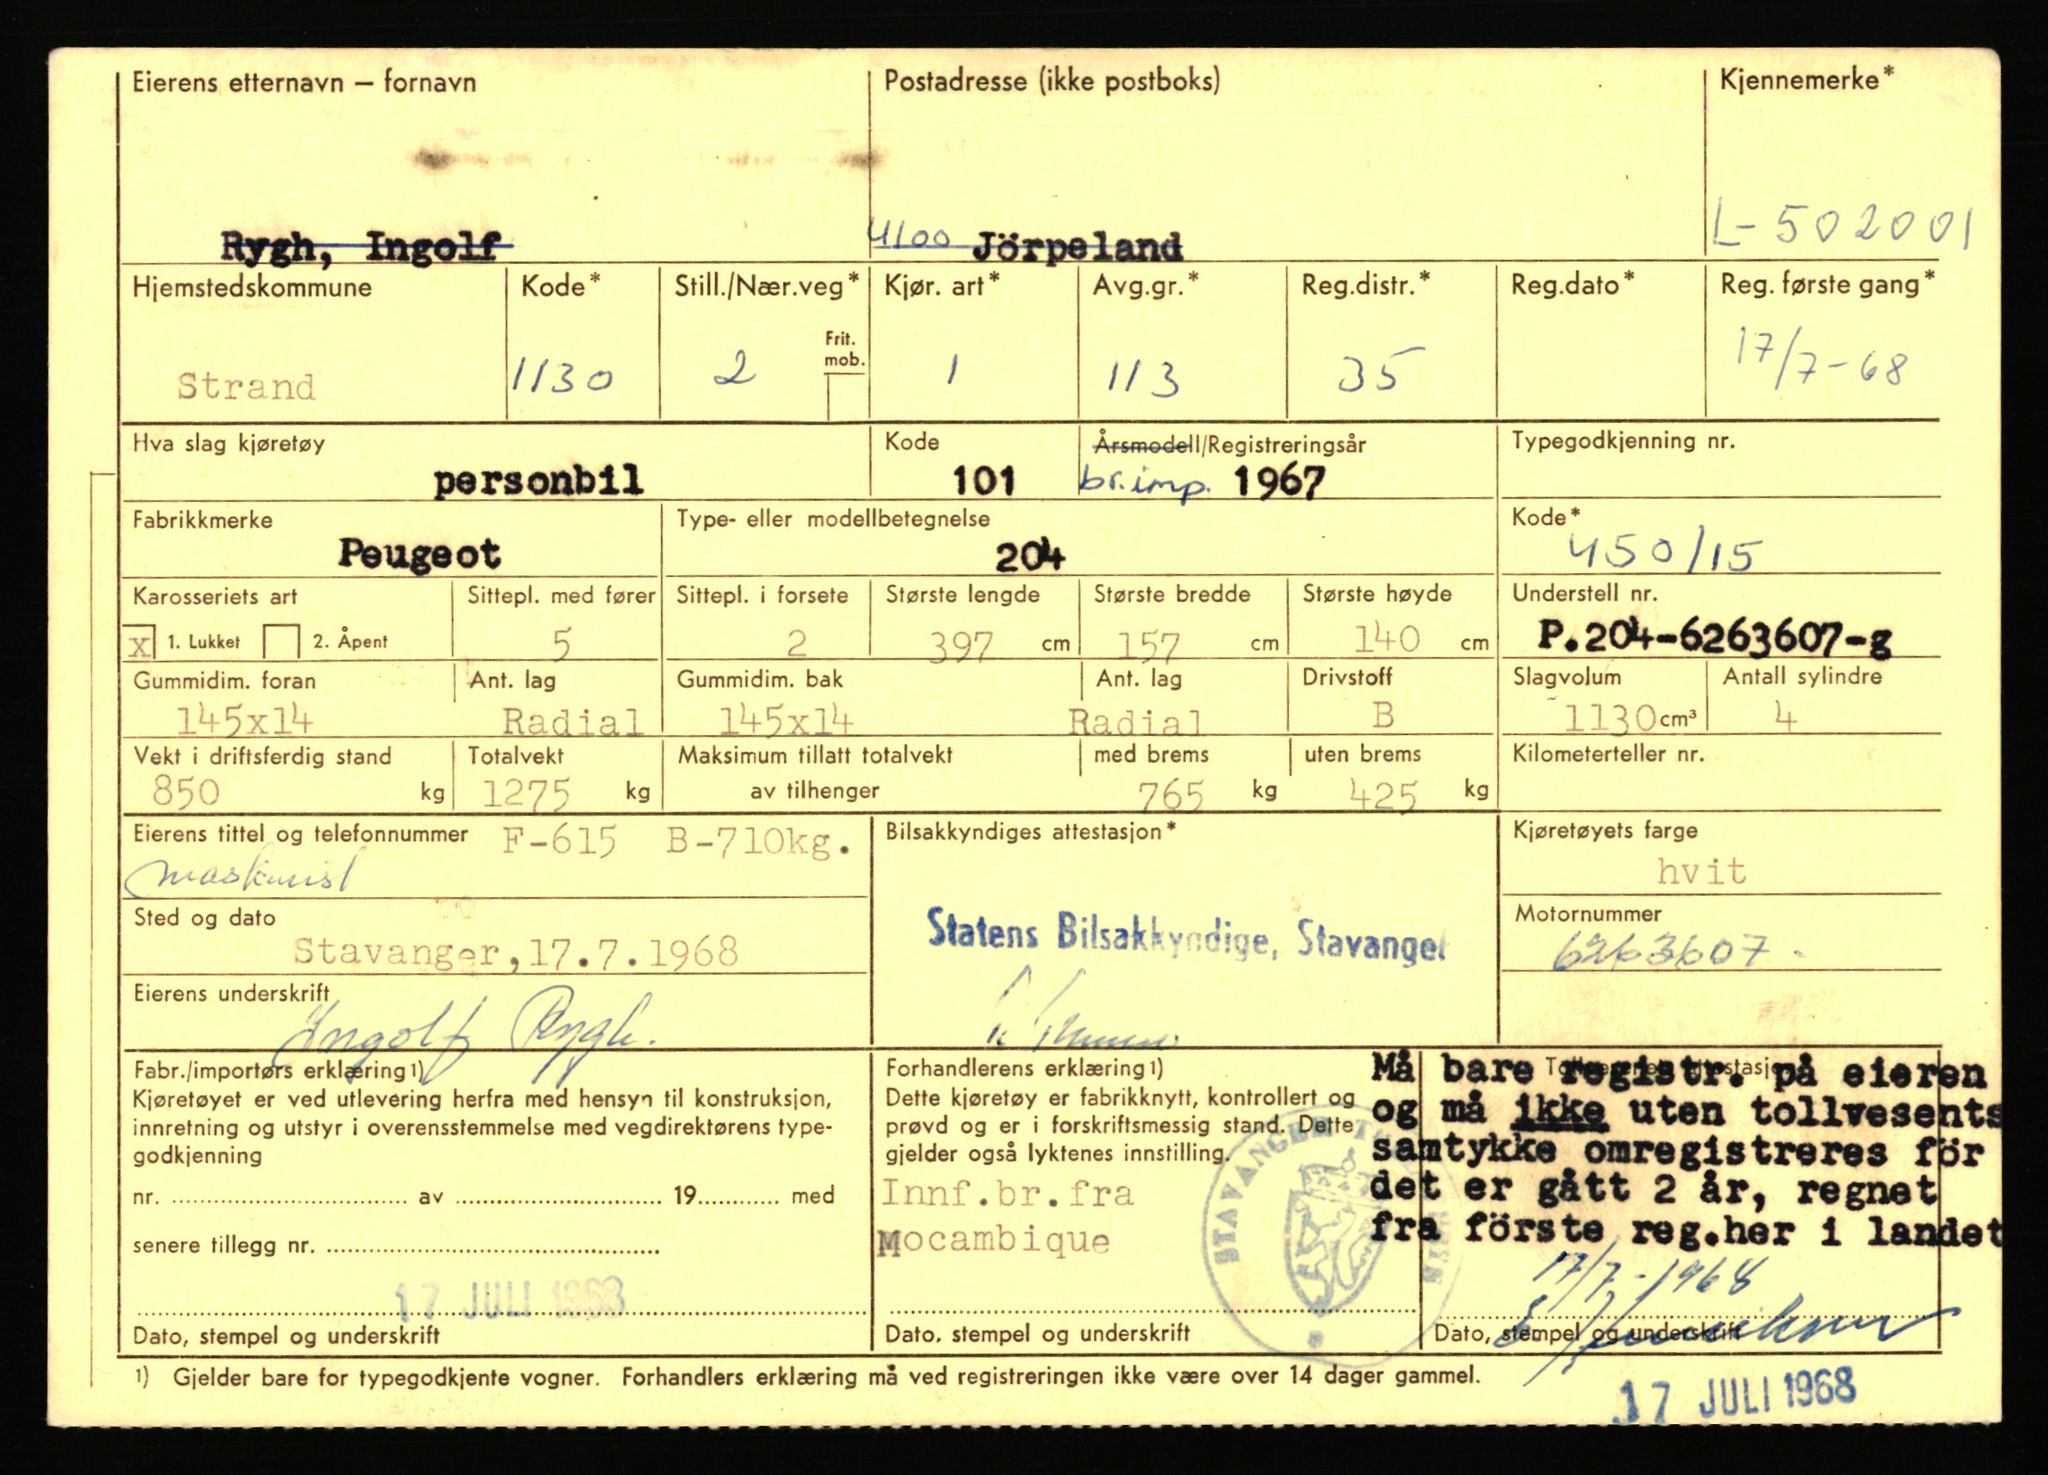 Eierens etternavn – fornavn Postadresse (ikke postboks) Kjennemerke*
Rygh, Ingolf 4100 Jörpeland L-502001
Hjemstedskommune Kode* Still./Nær.veg* Kjør. art* Avg.gr.* Reg.distr.* Reg.dato* Reg. første gang*
Frit. mob.
Strand 1130 2 1 113 35 17/7-68
Hva slag kjøretøy Kode Årsmodell/Registreringsår Typegodkjenning nr.
personbil 101 br.imp. 1967
Fabrikkmerke Type- eller modellbetegnelse Kode*
Peugeot 204 450/15
Karosseriets art Sittepl. med fører Sittepl. i forsete Største lengde Største bredde Største høyde Understell nr.
x 1. Lukket 2. Åpent 5 2 397 cm 157 cm 140 cm P.204-6263607-g
Gummidim. foran Ant. lag Gummidim. bak Ant. lag Drivstoff Slagvolum Antall sylindre
145x14 Radial 145x14 Radial B 1130 cm³ 4
Vekt i driftsferdig stand Totalvekt Maksimum tillatt totalvekt med brems uten brems Kilometerteller nr.
850 kg 1275 kg av tilhenger 765 kg 425 kg
Eierens tittel og telefonnummer F-615 B-710kg. Bilsakkyndiges attestasjon* Kjøretøyets farge
maskinist hvit
Sted og dato Statens Bilsakkyndige, Stavanger Motornummer
Stavanger, 17.7.1968 6263607.
Eierens underskrift
Ingolf Rygh.
Fabr./importørs erklæring 1)
Kjøretøyet er ved utlevering herfra med hensyn til konstruksjon,
innretning og utstyr i overensstemmelse med vegdirektørens type-
godkjenning
nr. av 19 med
senere tillegg nr.
17 JULI 1968
Dato, stempel og underskrift
Forhandlerens erklæring 1)
Dette kjøretøy er fabrikknytt, kontrollert og
prøvd og er i forskriftsmessig stand. Dette
gjelder også lyktenes innstilling.
Innf.br.fra
Mocambique
STAVANGER
Dato, stempel og underskrift
Må bare registr. på eieren
og må ikke uten tollvesents
samtykke omregistreres för
det er gått 2 år, regnet
fra förste reg.her i landet
17/7-1968
Dato, stempel og underskrift
1) Gjelder bare for typegodkjente vogner. Forhandlers erklæring må ved registreringen ikke være over 14 dager gammel.
17 JULI 1968